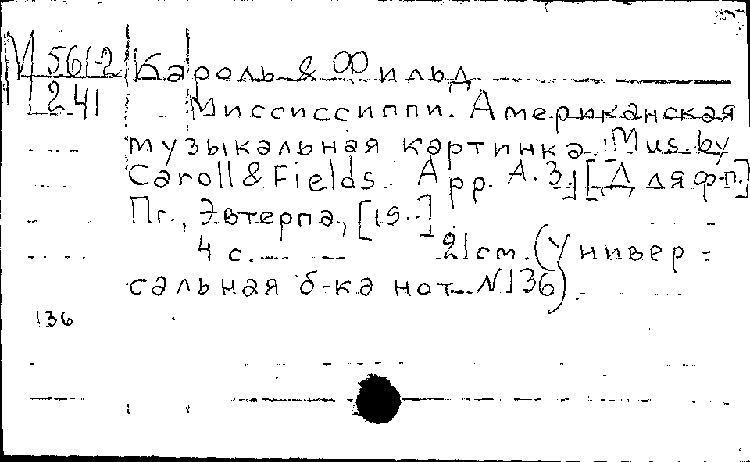 М 561-2 Кароль & Фильд
241 Миссиссиппи. Американская
музыкальная картинка. Mus. by
Caroll & Fields. Арр. А. З. [Для фп.]
Пг., Эвтерпа, [19..]
4 с. 21 см. (Универ-
сальная б-ка нот. N 136).
136